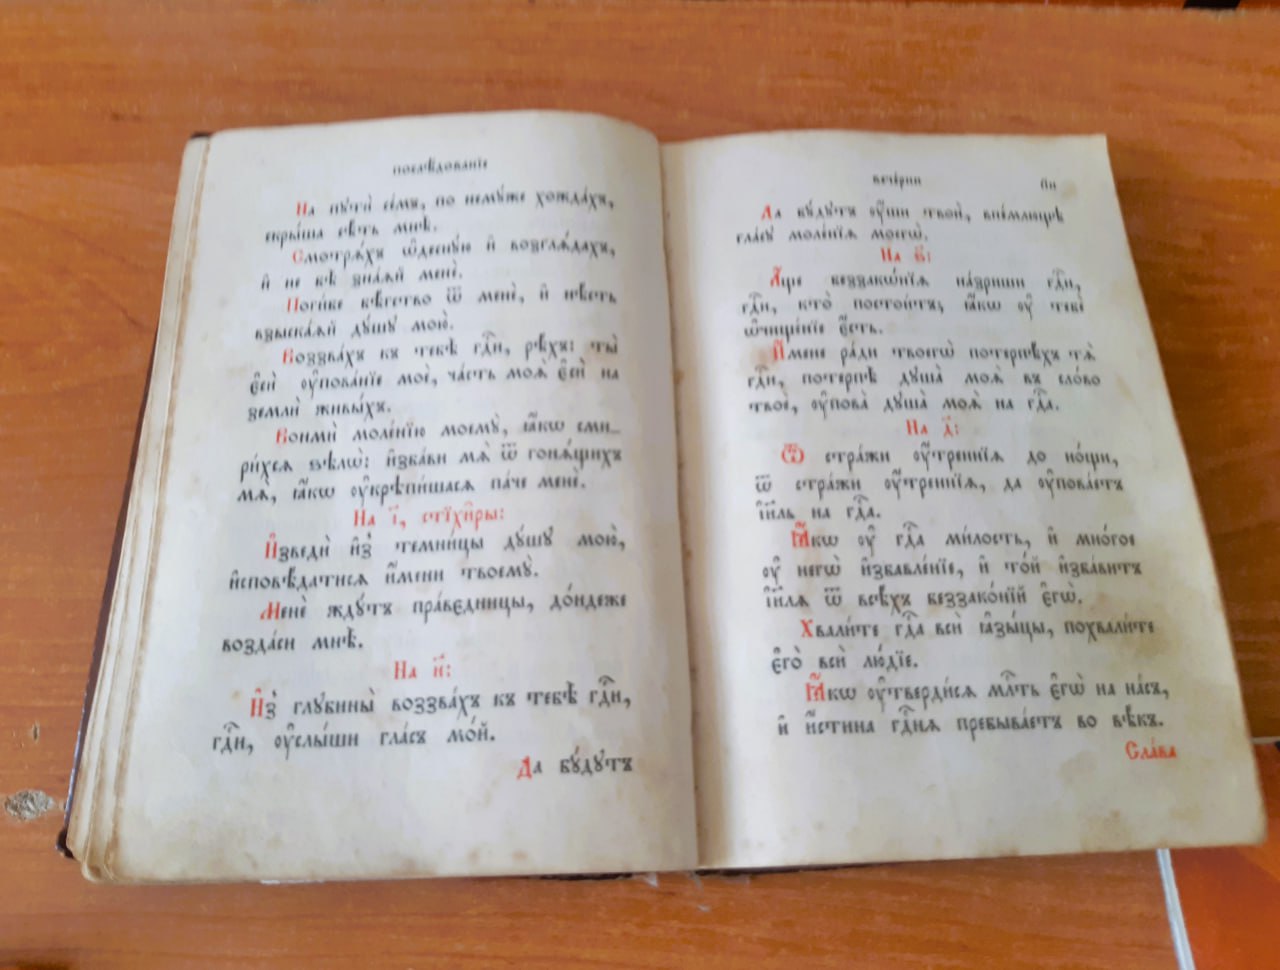 послѣ́дованїе
На пꙋтѝ се́мъ, по немꙋ́же хожда́хъ,
скры́ша сѣ́ть мнѣ̀.
Смотрѧ́хъ ѡ҆деснꙋ́ю и҆ возглѧ́дахъ,
и҆ не бѣ̀ зна́ѧй менѐ.
Поги́бе бѣ́гство ѿ менѐ, и҆ нѣ́сть
взыска́ѧй дꙋ́шꙋ мою̀.
Воззва́хъ къ тебѣ̀ гдⷭ҇и, рѣ́хъ: ты̀
є҆сѝ ᲂу҆пова́нїе моѐ, ча́сть моѧ̀ є҆сѝ на
землѝ живы́хъ.
Вонмѝ моле́нїю моемꙋ̀, ꙗ҆́кѡ сми_
ри́хсѧ ѕѣлѡ̀: и҆зба́ви мѧ̀ ѿ гонѧ́щихъ
мѧ̀, ꙗ҆́кѡ ᲂу҆крѣпи́шасѧ па́че менѐ.
На і҃, стїхи̑ры:
И҆зведѝ и҆з̾ темни́цы дꙋ́шꙋ мою̀,
и҆сповѣ́датисѧ и҆́мени твоемꙋ̀.
Менѐ ждꙋ́тъ пра́вєдницы, до́ндеже
возда́си мнѣ̀.
На и҃:
И҆з̾ глꙋбины̀ воззва́хъ къ тебѣ̀ гдⷭ҇и,
гдⷭ҇и, ᲂу҆слы́ши гла́съ мо́й.
Да бꙋ́дꙋтъ
вече́рни
Да бꙋ́дꙋтъ ᲂу҆́ши твоѝ, вне́млющѣ
гла́сꙋ моле́нїѧ моегѡ̀.
На
А҆́ще беззакѡ́нїѧ на́зриши гдⷭ҇и,
гдⷭ҇и, кто̀ постои́тъ; ꙗ҆́кѡ ᲂу҆ тебє̀
ѡ҆чище́нїе є҆́сть.
И҆́мене ра́ди твоегѡ̀ потерпѣ́хъ тѧ̀
гдⷭ҇и, потерпѣ̀ дꙋша̀ моѧ̀ въ сло́во
твоѐ, ᲂу҆пова̀ дꙋша̀ моѧ̀ на гдⷭ҇а.
На д҃:
Ѿ стра́жи ᲂу҆́треннїѧ до но́щи,
ѿ стра́жи ᲂу҆́треннїѧ, да ᲂу҆пова́етъ
і҆и҃ль на гдⷭ҇а.
Ꙗ҆́кѡ ᲂу҆ гдⷭ҇а ми́лость, и҆ мно́гое
ᲂу҆ негѡ̀ и҆збавле́нїе, и҆ то́й и҆зба́витъ
і҆и҃лѧ ѿ всѣ́хъ беззако́нїй є҆гѡ̀.
Хвали́те гдⷭ҇а всѝ ꙗ҆зы́цы, похвали́те
є҆го̀ всѝ лю́дїе.
Ꙗ҆́кѡ ᲂу҆тверди́сѧ млⷭ҇ть є҆гѡ̀ на на́съ,
и҆ и҆́стина гдⷭ҇нѧ пребыва́етъ во вѣ́къ.
Сла́ва